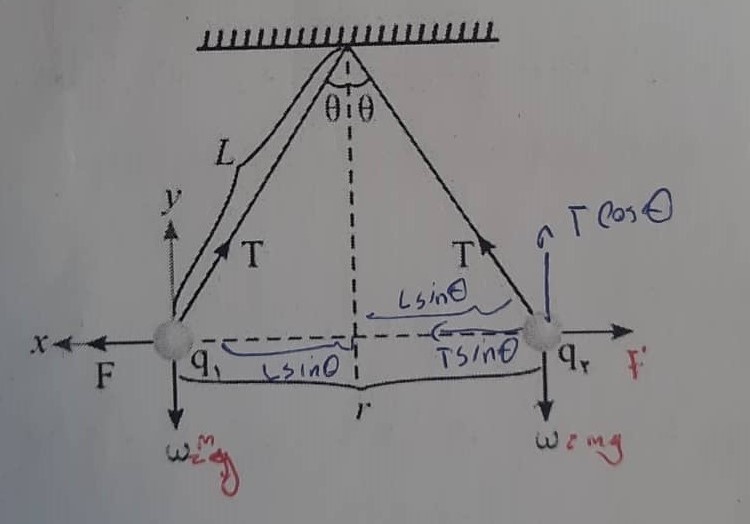 θ θ
L
y
T
T
T cosθ
L sinθ
x
F
q₁
L sinθ
T sinθ
q۲
F
r
ω = mg
ω = mg